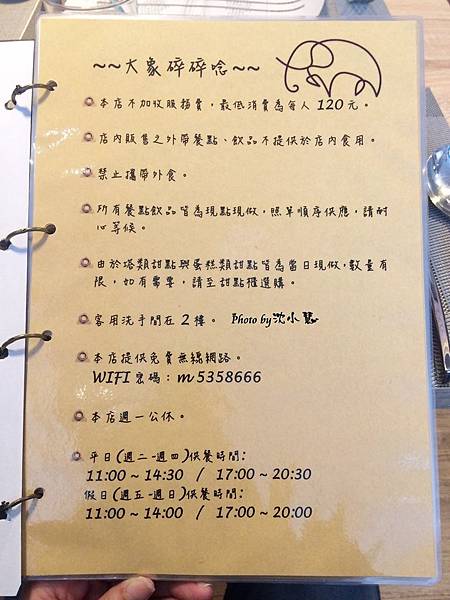 ~~大象碎碎唸~~
本店不加收服務費，最低消費為每人 120 元。
店內販售之外帶餐點、飲品不提供於店內食用。
禁止攜帶外食。
所有餐點飲品皆為現點現做，照單順序供應，請耐
心等候。
由於塔類甜點與蛋糕類甜點皆為當日現做，數量有
限，如有需要，請至甜點櫃選購。
客用洗手間在 2 樓。 Photo by沈小慧
本店提供免費無線網路。
WIFI 密碼：m5358666
本店週一公休。
平日(週二-週四)供餐時間：
11:00 ~ 14:30 / 17:00 ~ 20:30
假日(週五-週日)供餐時間：
11:00 ~ 14:00 / 17:00 ~ 20:00